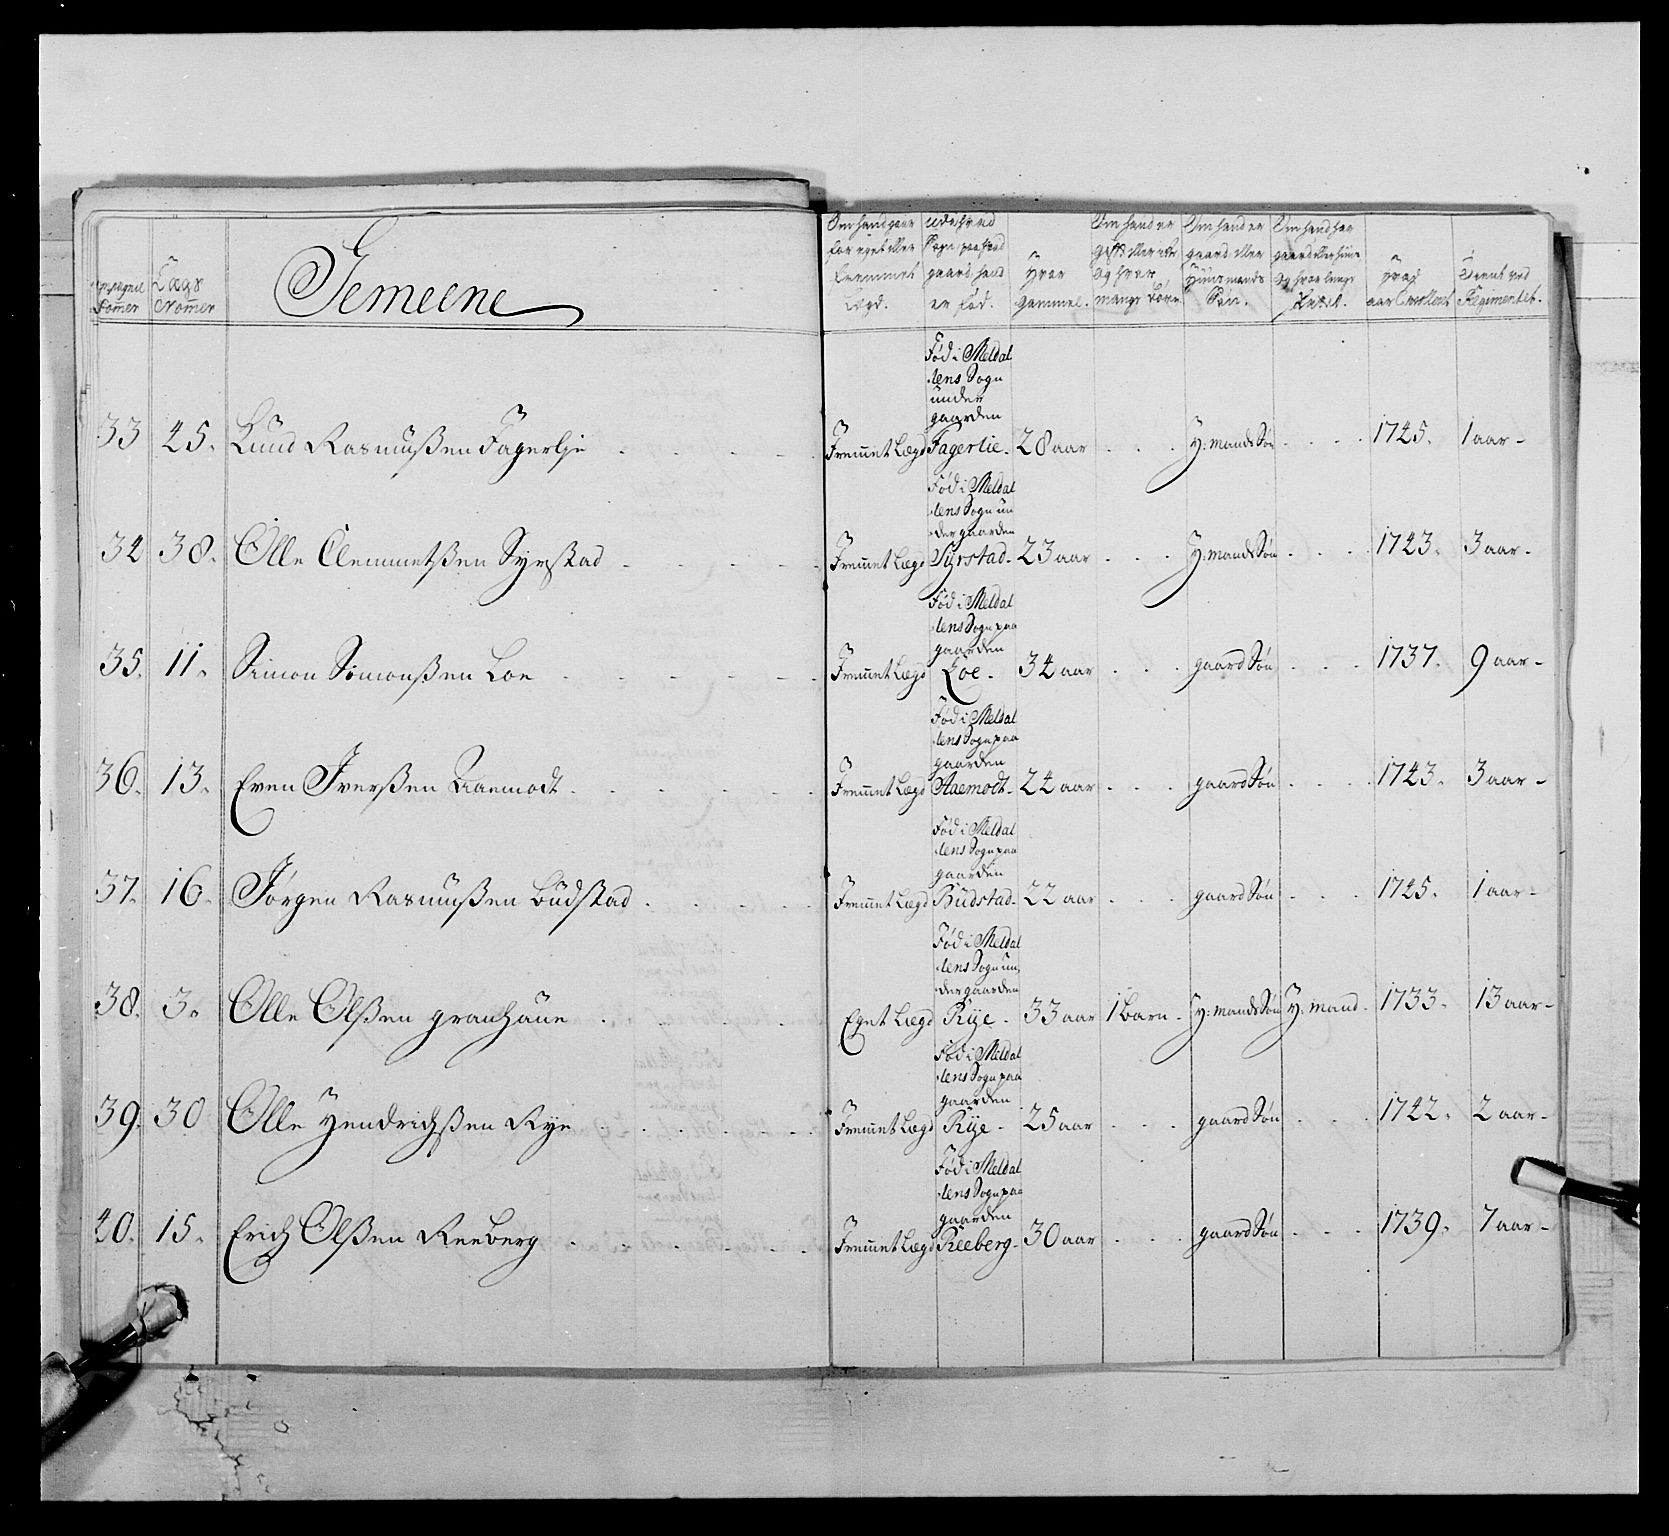 Compagnie Nommer
Lægs Nommer
Gemeene
Om hand gaar for eget eller fremmet Lægd.
Udi hvad Sogn paa hvad gaard hand er fød.
Hvor gammel.
Om hand er gift eller ikke og hvor mange Børn
Om hand er gaard eller Huusmands Søn.
Om hand har gaard eller huus og hvor længe
Hvad aar Enrollert
Tient ved Regimentet.
33 45. Knud Rasmußen Fagerlje Fremmet Lægd Fød i Meldalens Sogn under gaarden Fagerlie. 28 aar H: mands Søn 1745. 1 aar
34 38. Olle Clemmetßen Syrstad Fremmet Lægd Fød i Meldalens Sogn under gaarden Syrstad. 23 aar H: mands Søn 1743. 3 aar
35. 11. Simon Simonßen Loe Fremmet Lægd Fød i Meldalens Sogn paa gaarden Loe. 34 aar gaard Søn 1737. 9 aar
36. 13. Even Iverßen Aaemodt Fremmet Lægd Fød i Meldalens Sogn paa gaarden Aaemodt. 24 aar gaard Søn 1743. 3 aar
37. 16. Jørgen Rasmußen Budstad Fremmet Lægd Fød i Meldalens Sogn paa gaarden Budstad. 22 aar gaard Søn 1745. 1 aar
38. 3. Olle Olßen granhaue Eget Lægd Fød i Meldalens Sogn under gaarden Rije. 33 aar 1 Barn H: mands Søn H: mand 1733. 13 aar
39. 30 Olle Hendrichßen Rye Fremmet Lægd Fød i Meldalens Sogn paa gaarden Rije 25 aar gaard Søn 1742. 2 aar
40. 15. Erich Olßen Reeberg Fremmet Lægd Fød i Meldalens Sogn paa gaarden Reeberg. 30 aar gaard Søn 1739. 7 aar